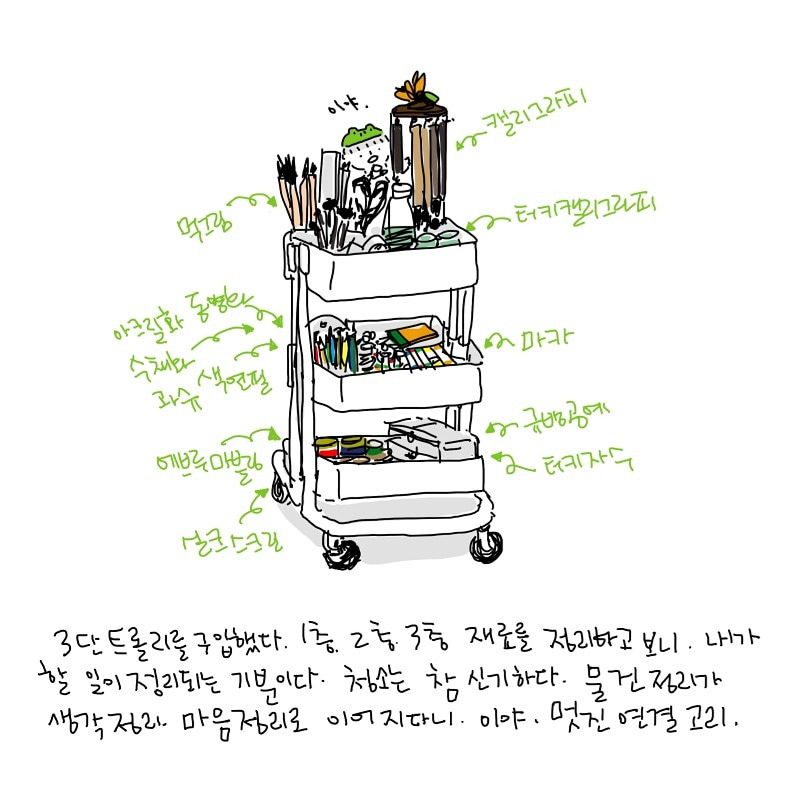 이야.
캘리그라피
먹그림
터키캘리그라피
아크릴화 동병화
수채화
과슈 색연필
마카
금박공예
에브루마블링
터키자수
실크스크린
3단 트롤리를 구입했다. 1층, 2층, 3층 재료를 정리하고 보니. 내가
할 일이 정리되는 기분이다. 청소는 참 신기하다. 물건정리가
생각정리. 마음정리로 이어지다니. 이야. 멋진 연결고리.